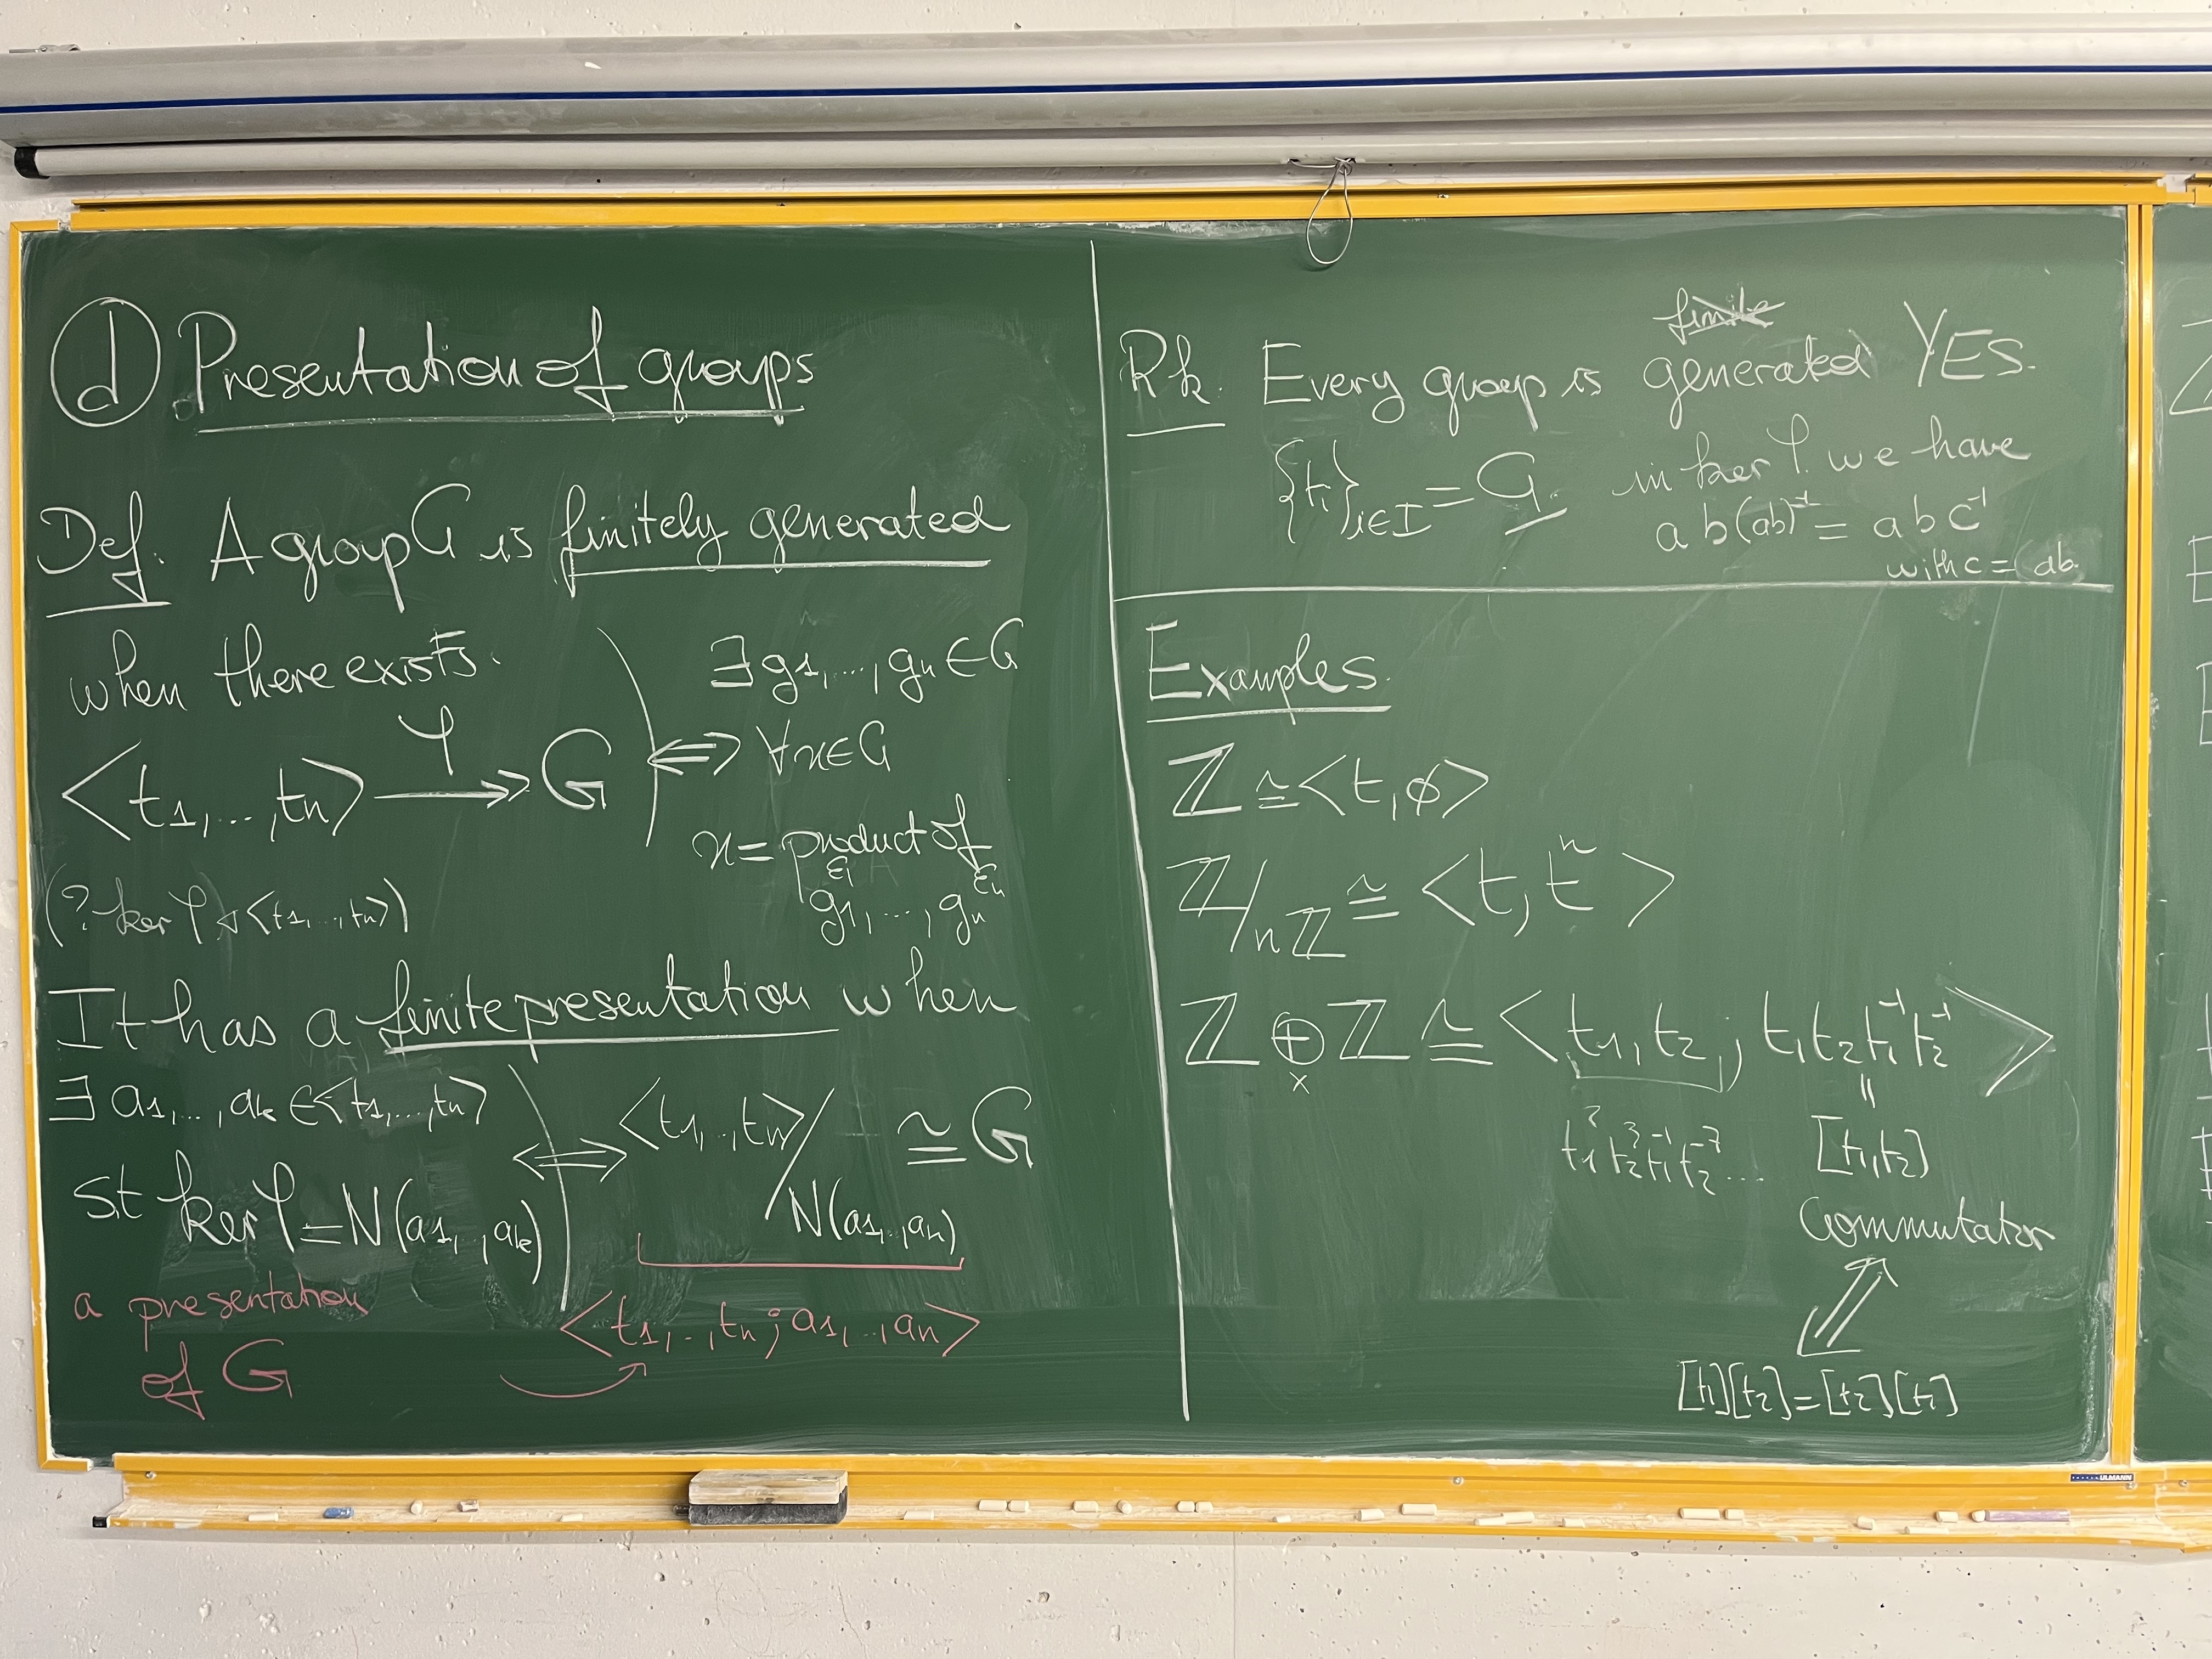 ⓓ Presentation of groups
Def. A group G is finitely generated
when there exists.
<t1,...,tn> —φ→> G
⟺ ∃ g1,...,gn ∈ G
∀x∈G
x = product of
g1^ε1,...,gn^εn
(? ker φ ◁ <t1,...,tn>)
It has a finite presentation when
∃ a1,...,ak ∈ <t1,...,tn>
st ker φ = N(a1,..,ak)
⟺ <t1,..,tn>/N(a1,..,an) ≅ G
a presentation
of G
<t1,..,tn; a1,..,an>
Rk. Every group is generated YES.
{ti}i∈I = G. in ker φ. we have
ab(ab)⁻¹ = abc⁻¹
with c = ab.
Examples.
ℤ ≅ <t, ∅>
ℤ/nℤ ≅ <t, tⁿ>
ℤ ⊕ ℤ ≅ <t1, t2; t1t2t1⁻¹t2⁻¹>
×
t1²t2³t1⁻¹t2⁻⁷...
||
[t1,t2]
Commutator
⇕
[t1][t2]=[t2][t1]
ULMANN